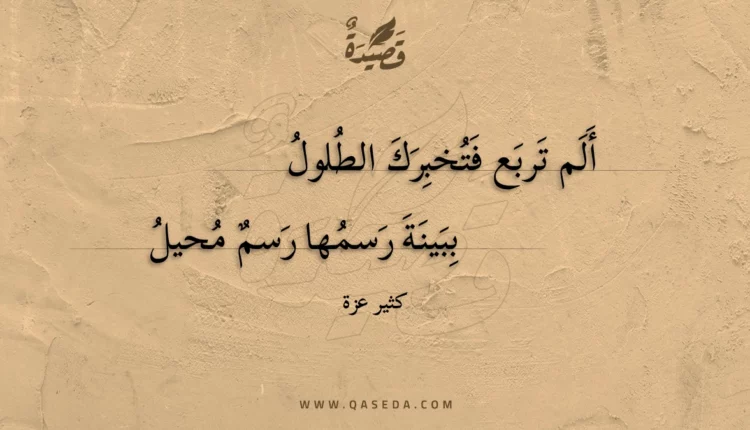 قَصِيدَةٌ
أَلَم تَربَع فَتُخبِرَكَ الطُلولُ
بِبَينَةَ رَسمُها رَسمٌ مُحيلُ
كثير عزة
WWW.QASEDA.COM